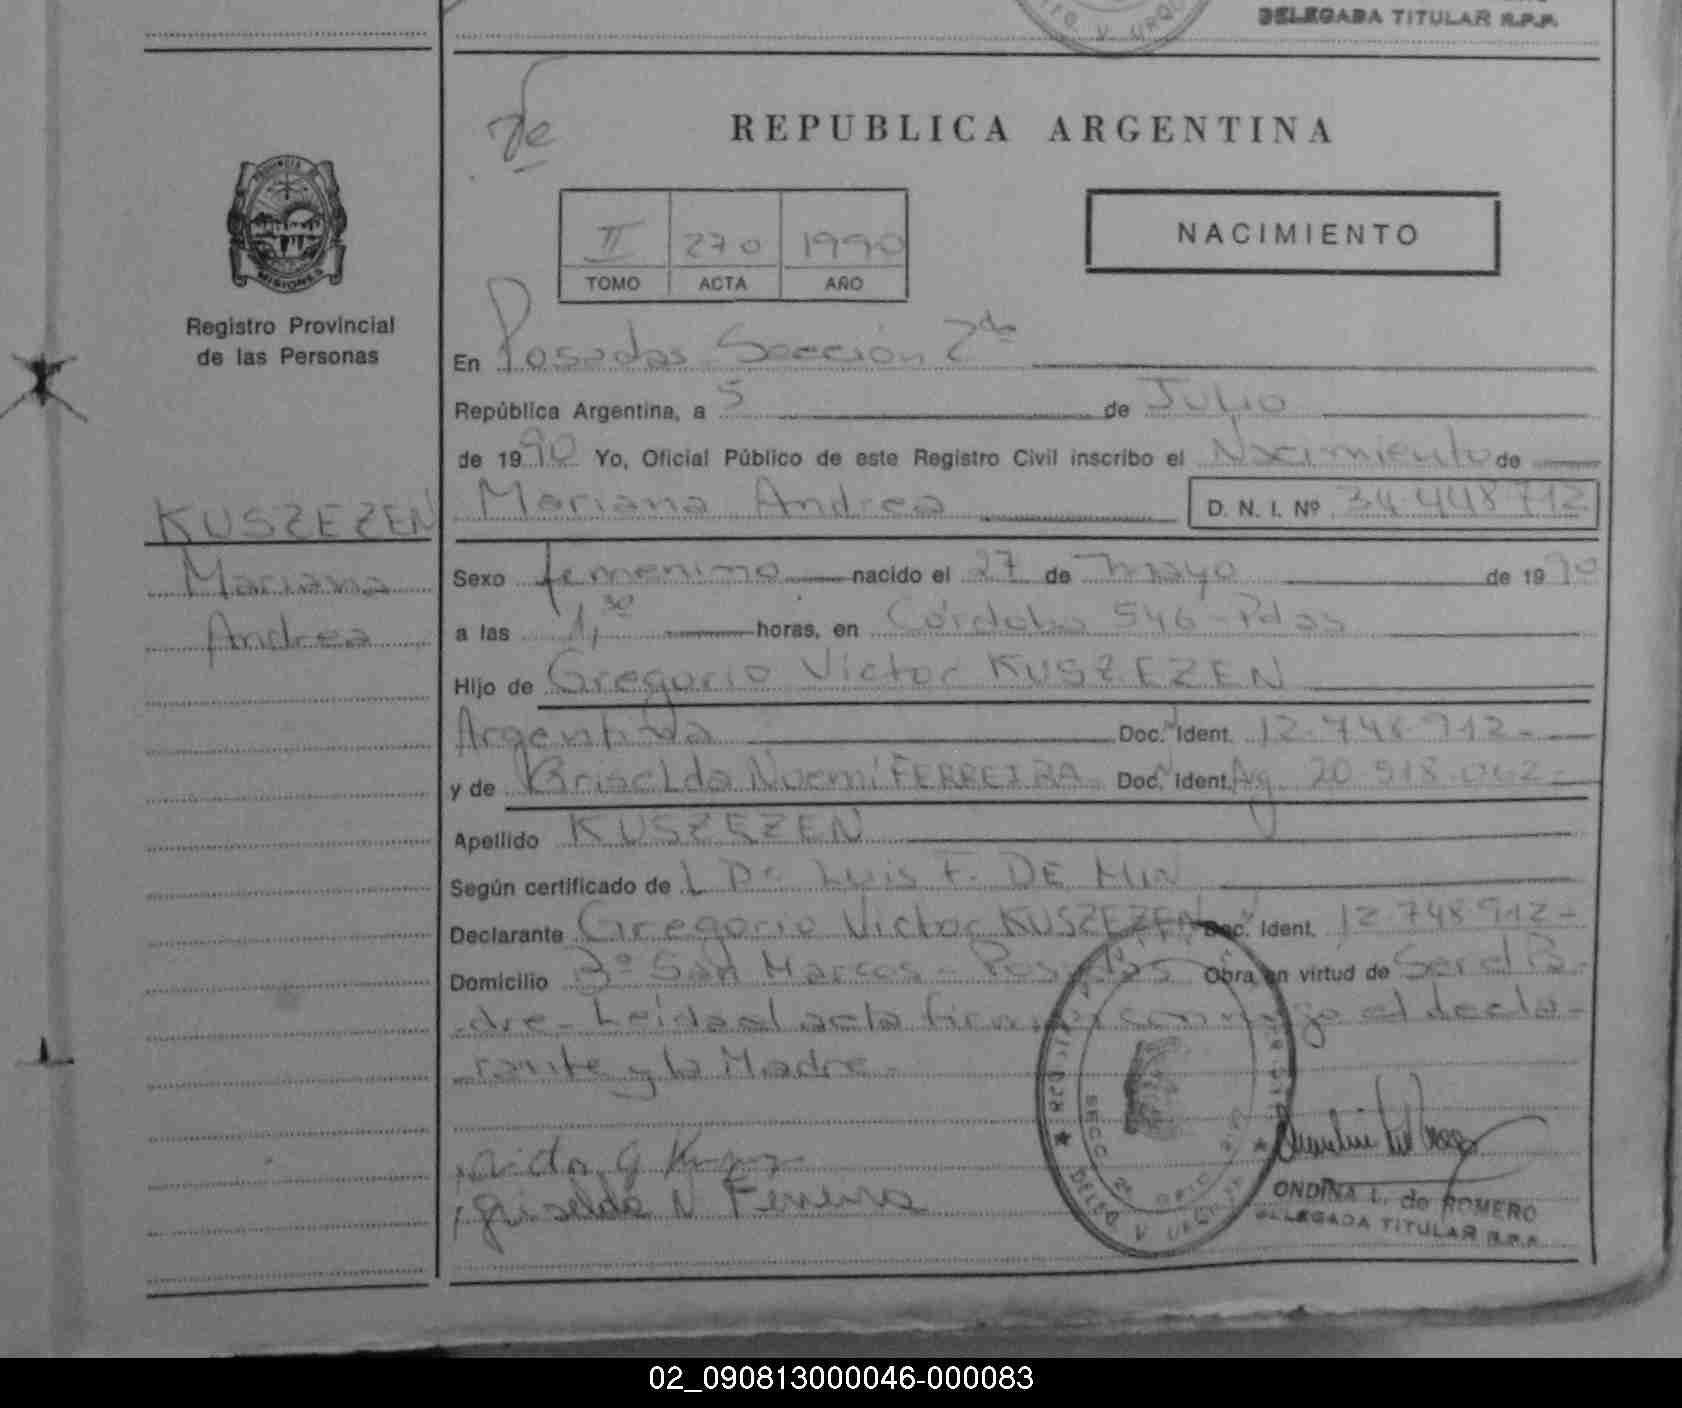 DELEGADA TITULAR R.P.P.
REPUBLICA ARGENTINA
NACIMIENTO
II 270 1990
TOMO ACTA AÑO
PROVINCIA DE
MISIONES
Registro Provincial
de las Personas
En Posadas Sección 2da
República Argentina, a 5 de Julio
de 1990 Yo, Oficial Público de este Registro Civil inscribo el Nacimiento de
KUSZEZEN
Mariana Andrea D. N. I. Nº 34.448.712
Mariana
Andrea
Sexo femenino nacido el 27 de mayo de 1990
a las 1,30 horas, en Córdoba 546-Pdas
Hijo de Gregorio Victor KUSZEZEN
Argentina Doc. Ident. 12.748.912-
y de Griselda Noemí FERREIRA Doc. Ident. Ag. 20.518.062-
Apellido KUSZEZEN
Según certificado de L Dr. Luis F. DE MIN
Declarante Gregorio Victor KUSZEZEN Doc. Ident. 12.748.912-
Domicilio Bº San Marcos - Posadas Obra en virtud de Ser el Pa-
dre- Leída el acta firman conmigo el decla-
rante y la Madre-
Griselda N Ferreira
ONDINA L. de ROMERO
DELEGADA TITULAR R.P.P.
02_090813000046-000083